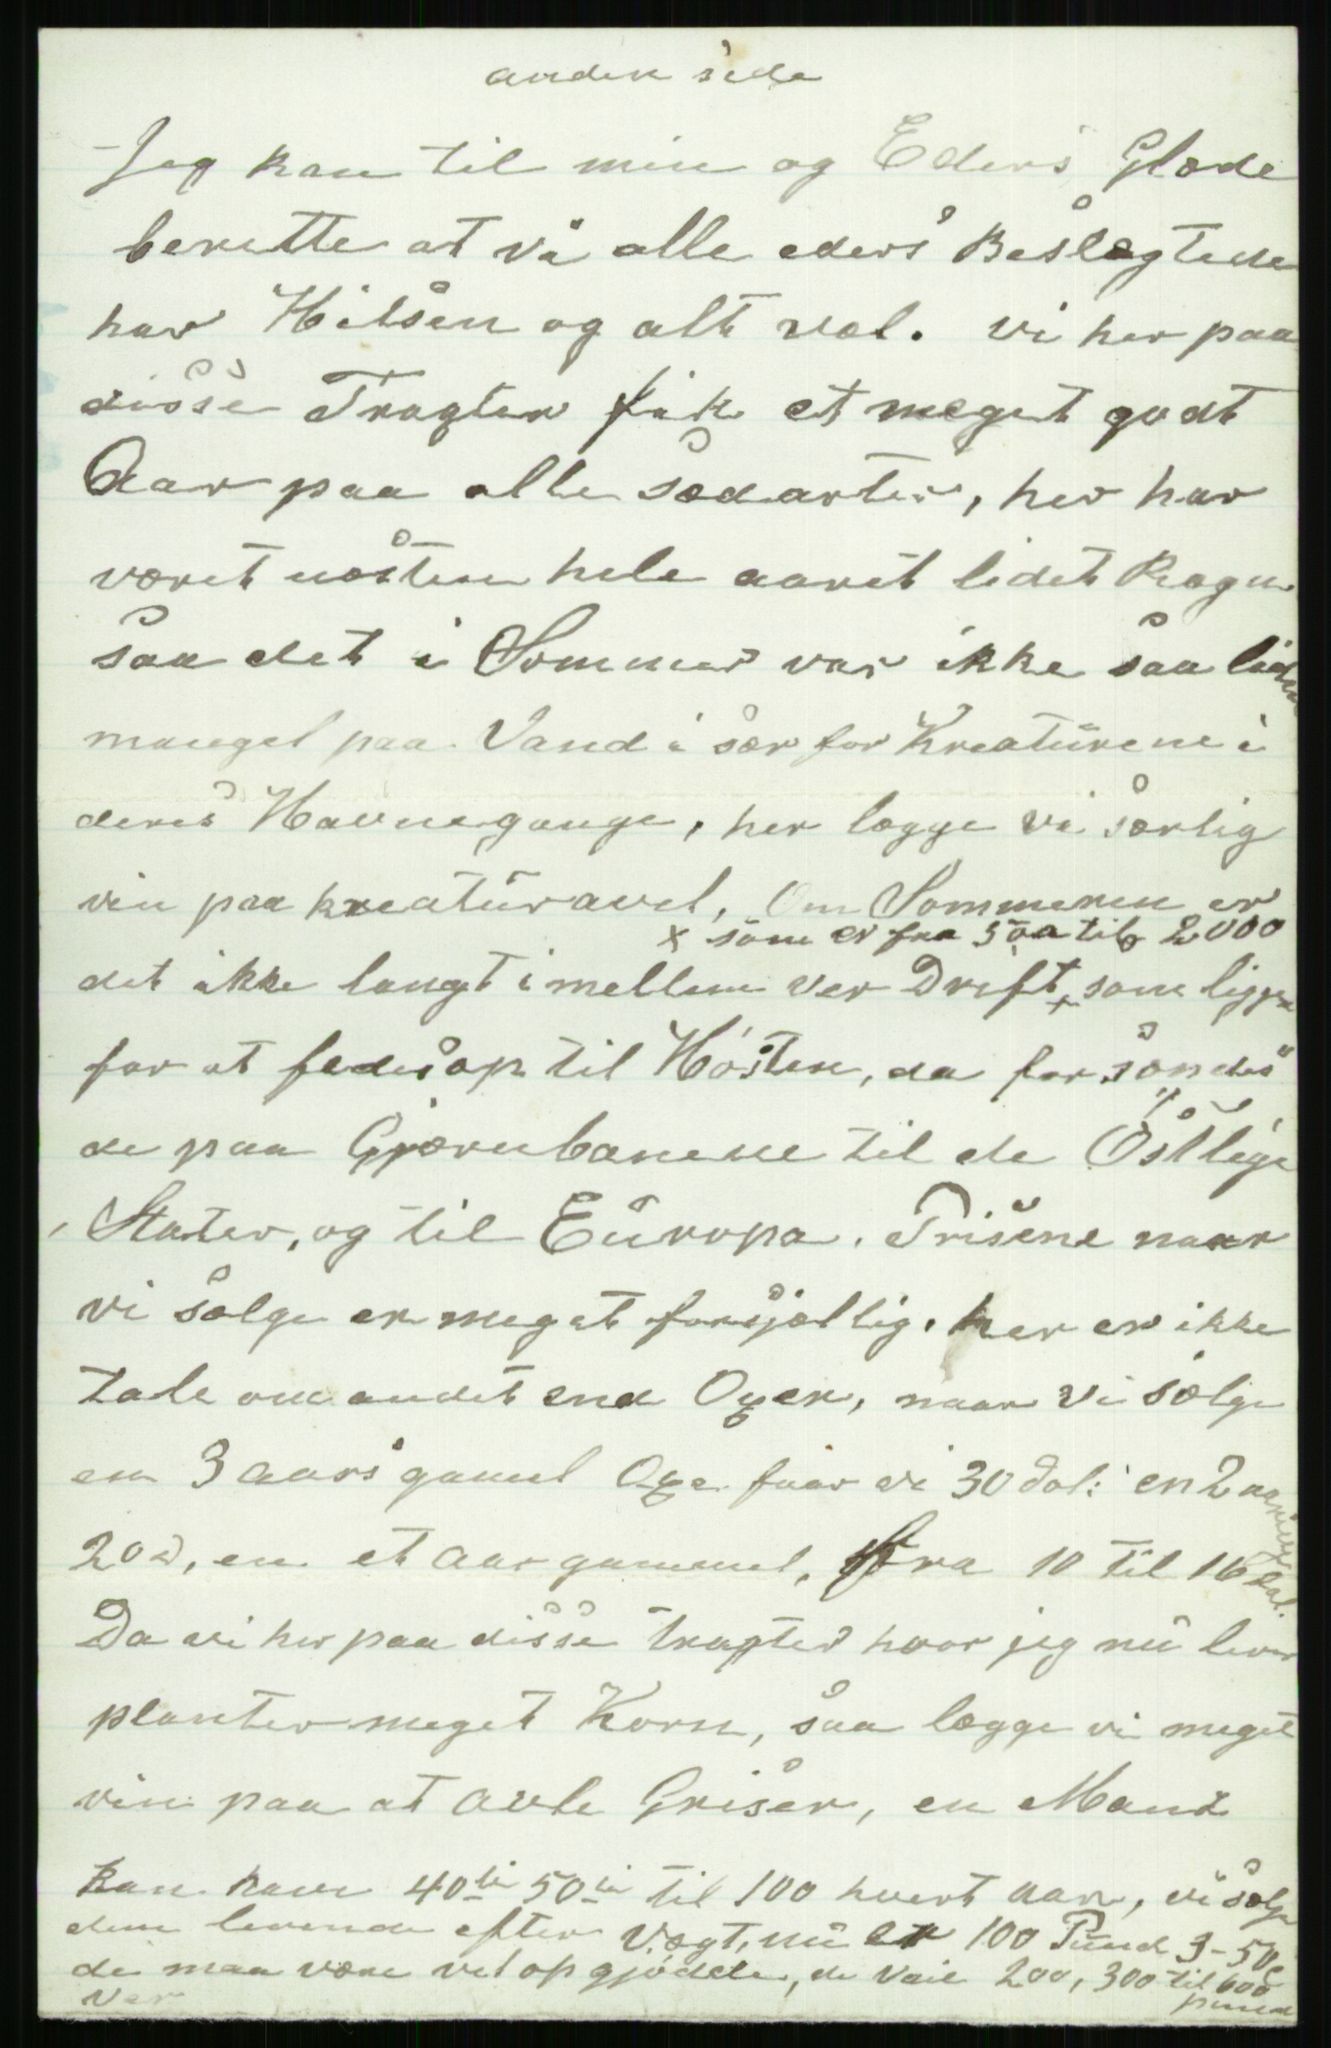 anden side
Jeg kan til min og Eders Glæde
berette at vi alle eders Beslægtede
har Hilsen og alt vel. vi her paa
disse Tragter fik et meget godt
Aar paa alle sædarter, her har
været næsten hele aaret lidet Regn
saa det i Sommer var ikke saa liden
mangel paa Vand i sær for Kreaturene i
deres Havnegange, her lægge vi særlig
vin paa kreaturavel, Om Sommeren er
x som er fra 500 til 2000
det ikke langt imellem ver Drift x som ligger
for at fedes op til Høsten, da forsendes
de paa Gjærnbanene til de Østlige
Stater, og til Europa. Prisene naar
vi sælge er meget forsjællig. her er ikke
tale om andet end Oxer, naar vi sælge
en 3 aars gamel Oxe faar vi 30 dol: en 2 aaring
20d, en et aar gammel, fra 10 til 16 dol.
Da vi her paa disse tragter hvor jeg nu lever
planter meget Korn, saa lægge vi meget
vin paa at avle Griser, en Mand
kan have 40ti 50ti til 100 hvert aar, vi sælge
dem levende efter Vægt, nu er 100 Pund 3-50c
de maa være vel opgjødde, de vaie 200, 300 til 600
ver pund